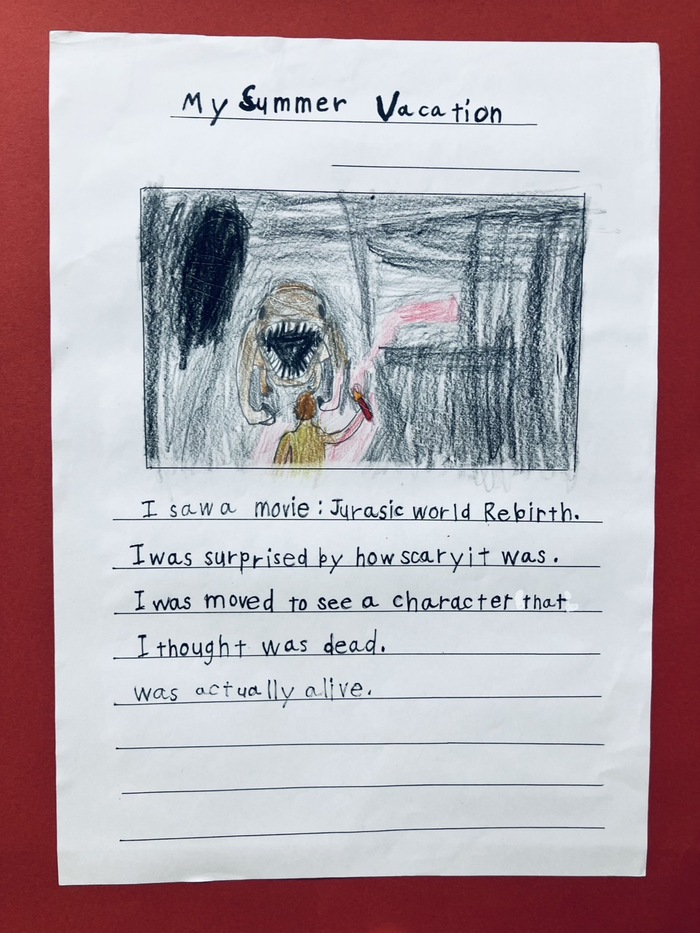 My Summer Vacation
I saw a movie : Jurasic world Rebirth.
I was surprised by how scary it was.
I was moved to see a character that
I thought was dead.
was actually alive.